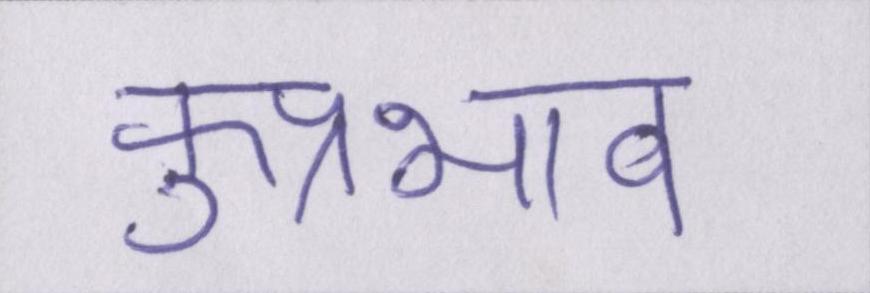 कुप्रभाव